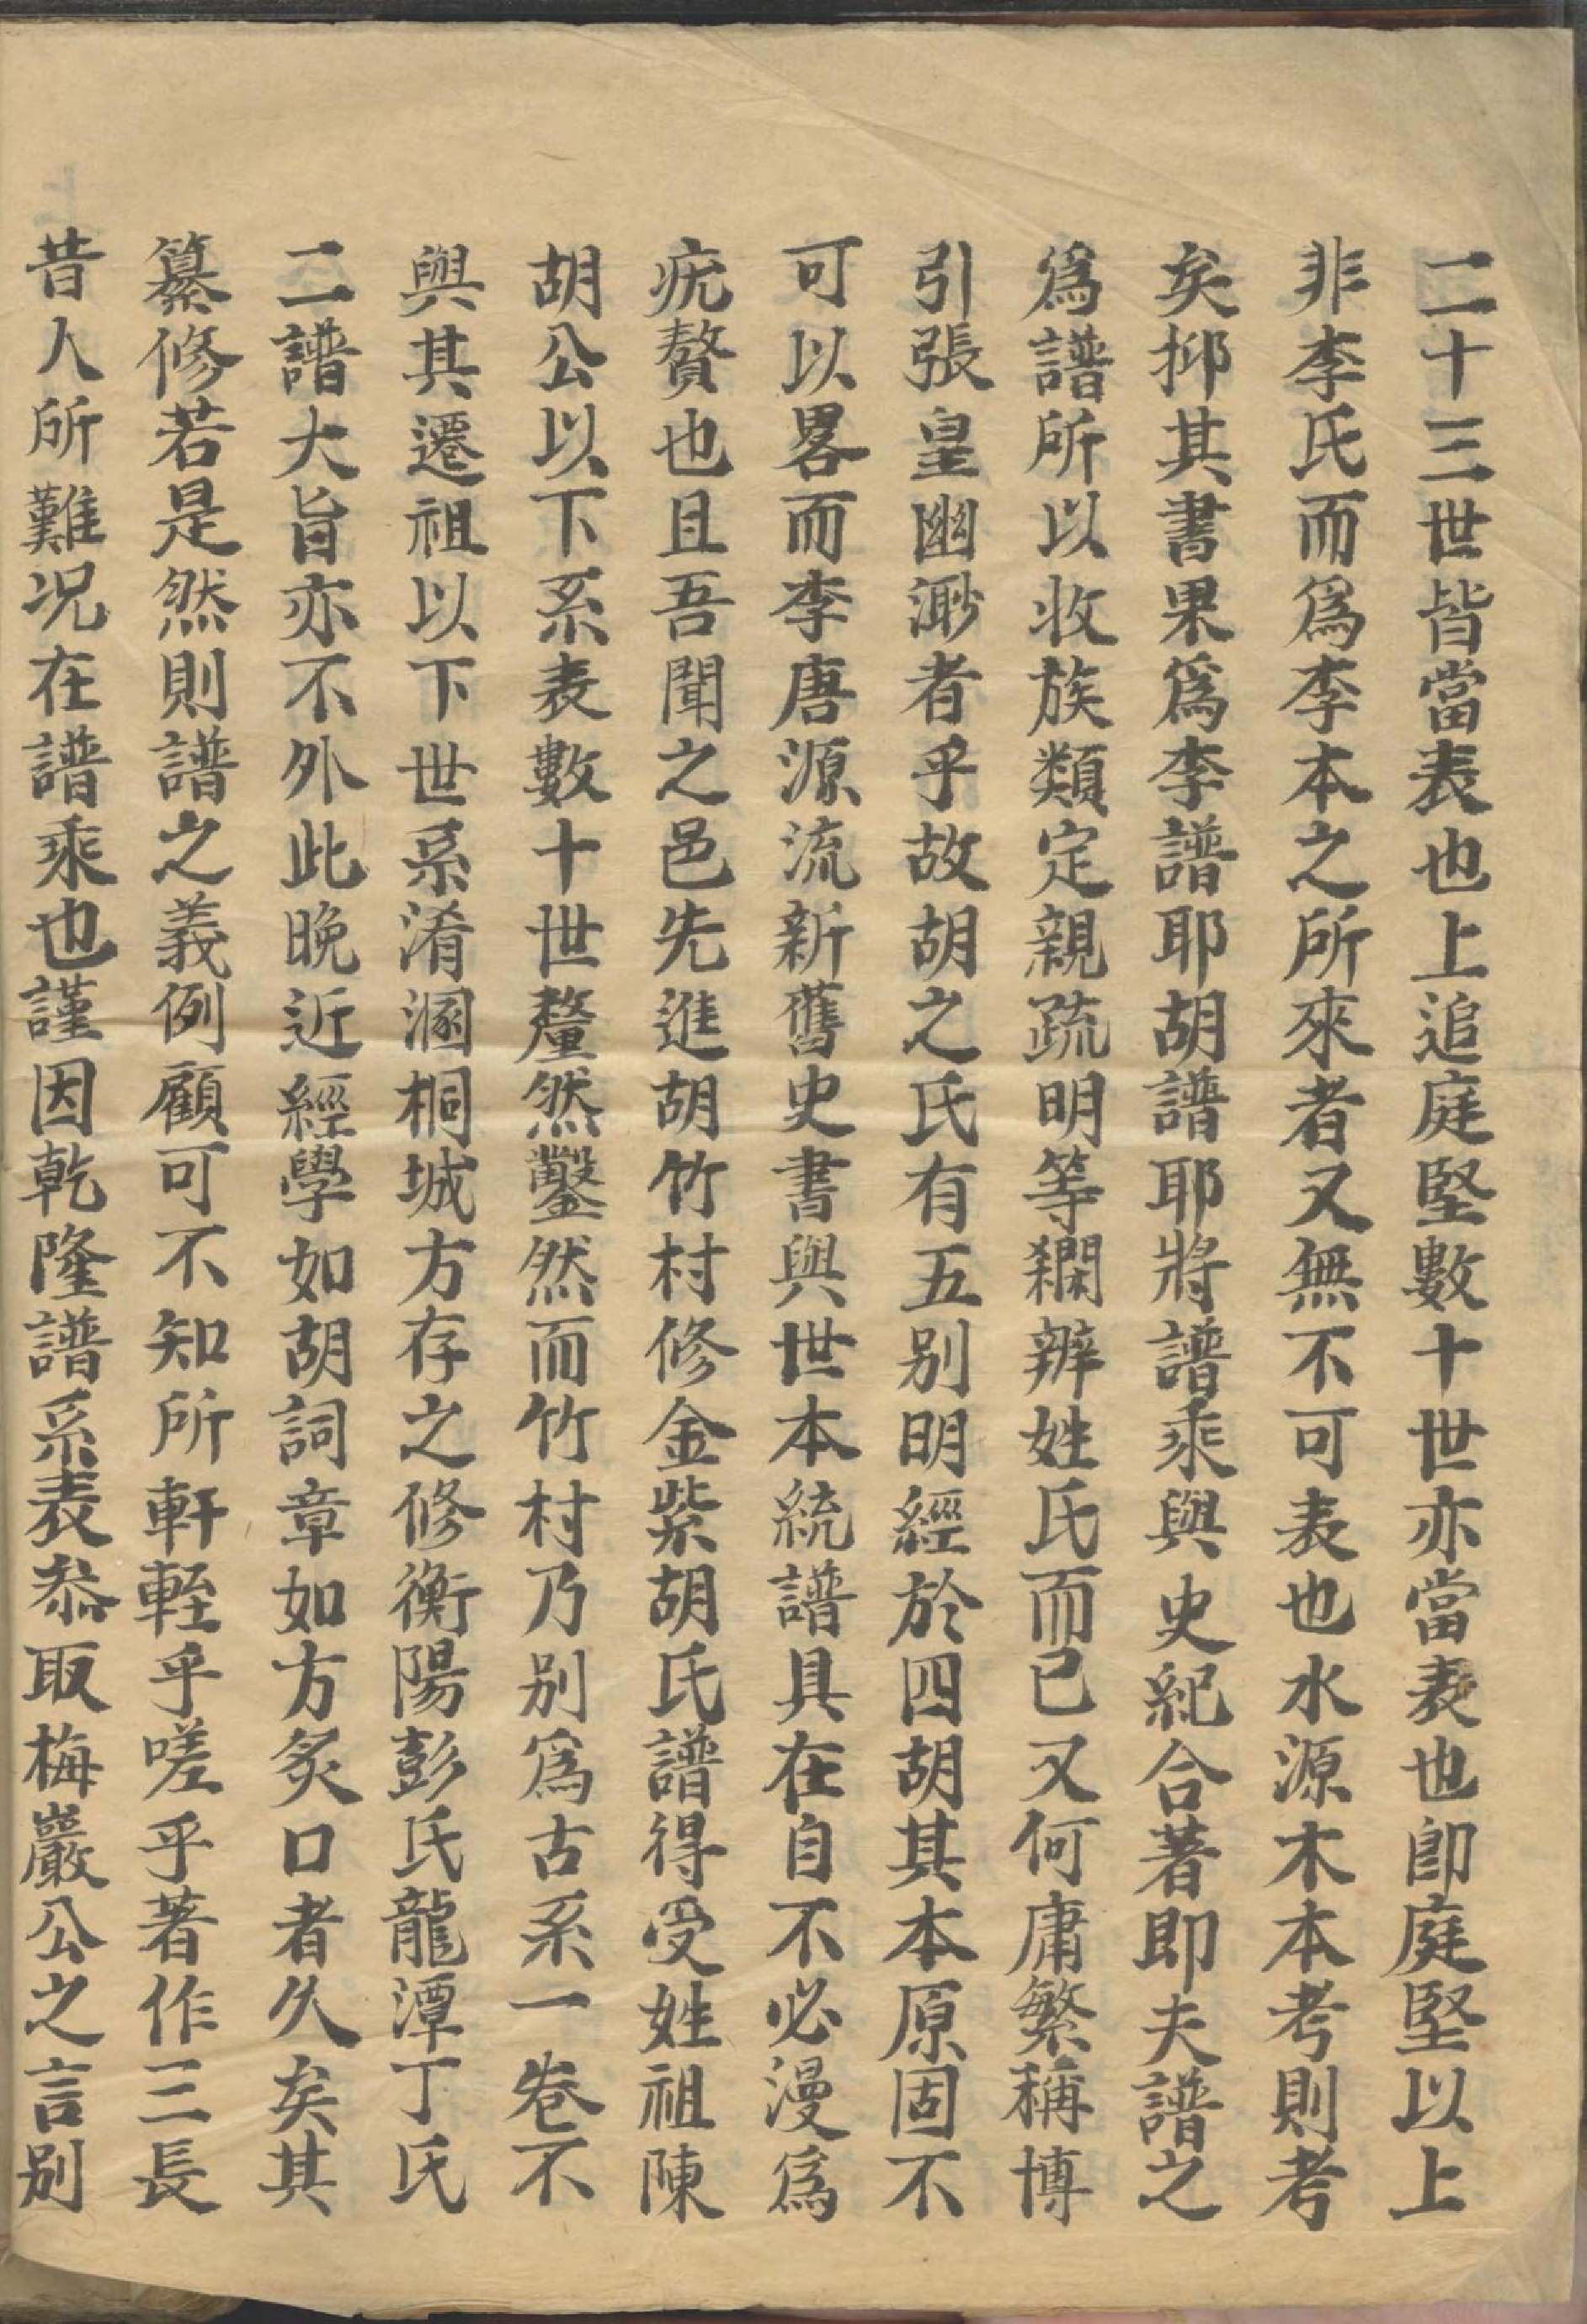 二十三世皆當表也上追庭堅數十世亦當表也卽庭堅以上
非李氏而爲李本之所來者又無不可表也水源木本考則考
矣抑其書果爲李譜耶胡譜耶將譜乘與史紀合著即夫譜之
爲譜所以收族類定親疏明等襴辨姓氏而已又何庸繁稱博
引張皇幽渺者乎故胡之氏有五别明經於四胡其本原固不
可以畧而李唐源流新舊史書與世本統譜具在自不必漫爲
疣贅也且吾聞之邑先進胡竹村修金紫胡氏譜得受姓祖陳
胡公以下系表數十世釐然鑿然而竹村乃别爲古系一卷不
與其遷祖以下世系淆溷桐城方存之修衡陽彭氏龍潭丁氏
二譜大旨亦不外此晚近經學如胡詞章如方炙口者久矣其
纂修若是然則譜之義例顧可不知所軒輊乎嗟乎著作三長
昔人所難况在譜乘也謹因乾隆譜系表叅取梅巖公之言别